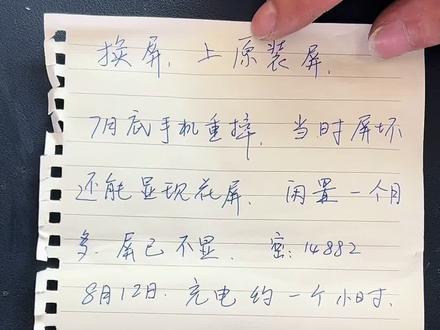 换屏，上原装屏，
7月底手机重摔，当时屏坏
还能显现花屏．闲置一个月
多．屏已不显．密：14882
8月12日．充电约一个小时．